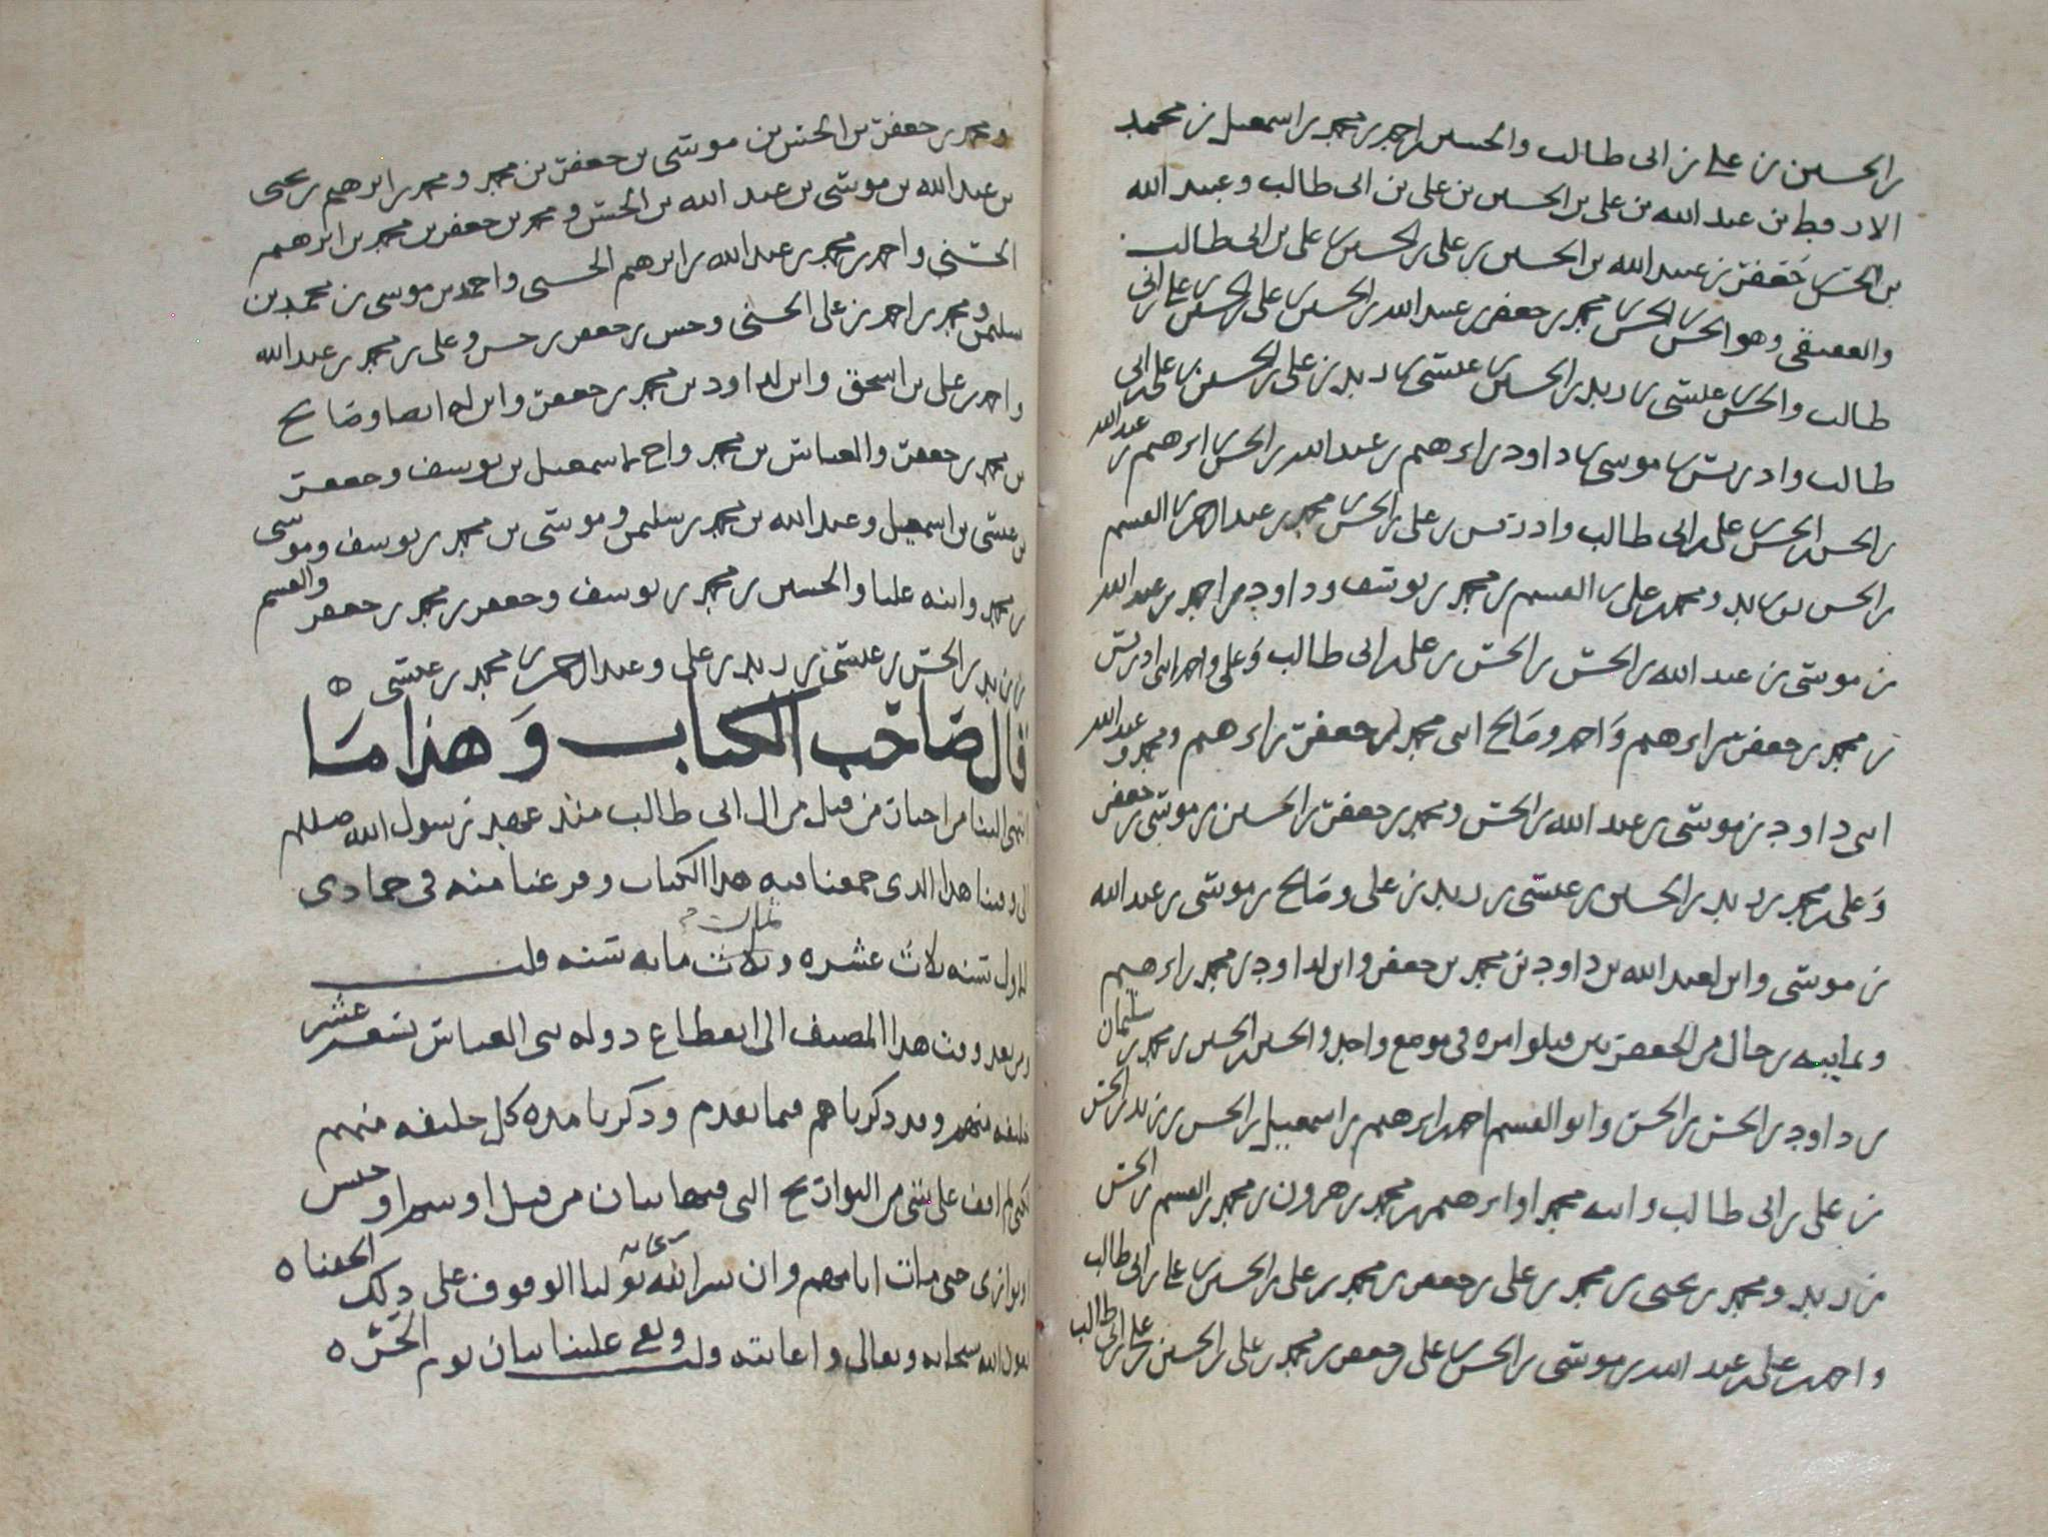 بن الحسين بن علي بن ابي طالب والحسين بن احمد بن محمد بن اسمعيل بن محمد
الارقط بن عبد الله بن علي بن الحسين بن علي بن ابي طالب وعبيد الله
بن الحسن بن جعفر بن عبيد الله بن الحسين بن علي بن الحسين بن علي بن ابي طالب
والعقيقي وهو الحسن بن محمد بن جعفر بن عبيد الله بن الحسين بن علي بن الحسين بن علي بن ابي
طالب والحسن بن عيسى بن زيد بن الحسين بن عيسى بن زيد بن علي بن الحسين بن علي بن ابي
طالب وادريس بن موسى بن داود بن ابرهيم بن عبد الله بن الحسن بن ابرهيم بن عبد الله
بن الحسن بن الحسن بن علي بن ابي طالب وادريس بن علي بن الحسن بن محمد بن عبد الرحمن بن القسم
بن الحسن بن زيد ومحمد بن علي بن القسم بن محمد بن يوسف وداود بن احمد بن عبد الله
بن موسى بن عبد الله بن الحسن بن الحسن بن علي بن ابي طالب وعلي واحمد ابني ادريس
بن محمد بن جعفر بن ابرهيم واحمد وصالح ابني محمد بن جعفر بن ابرهيم ومحمد وعبد الله
ابني داود بن موسى بن عبد الله بن الحسن ومحمد بن جعفر بن الحسين بن موسى بن جعفر
وعلي بن محمد بن زيد بن الحسين بن عيسى بن زيد بن علي وصالح بن موسى بن عبد الله
بن موسى وابن لعبد الله بن داود بن محمد بن جعفر وابن لداود بن محمد بن ابرهيم
وثمانيه رجال من الجعفريين قتلوا مره في موضع واحد والحسين بن الحسين بن محمد بن سليمان
بن داود بن الحسن بن الحسن وابو القسم احمد بن ابرهيم بن اسمعيل بن الحسن بن زيد بن الحسن
بن علي بن ابي طالب وابنه محمد او ابرهيم بن محمد بن هرون بن محمد بن القسم بن الحسن
بن زيد ومحمد بن يحيى بن محمد بن علي بن جعفر بن محمد بن علي بن الحسين بن علي بن ابي طالب
واحمد بن علي بن عبد الله بن موسى بن الحسن بن علي بن جعفر بن محمد بن علي بن الحسين بن علي بن ابي طالب
ومحمد بن جعفر بن الحسن بن موسى بن جعفر بن محمد ومحمد بن ابرهيم بن يحيى
بن عبد الله بن موسى بن عبد الله بن الحسن ومحمد بن جعفر بن محمد بن ابرهيم
الحسني واحمد بن محمد بن عبد الله بن ابرهيم الحسني واحمد بن موسى بن محمد بن
سليمن ومحمد بن احمد بن علي الحسني وحسن بن جعفر بن حسن وعلي بن محمد بن عبد الله
واحمد بن علي بن اسحق وابن لداود بن محمد بن جعفر وابن له ايضا وصالح
بن محمد بن جعفر والعباس بن محمد واحمد بن اسمعيل بن يوسف وجعفر
بن عيسى بن اسمعيل وعبد الله بن محمد بن سليمن وموسى بن محمد بن يوسف وموسى
بن محمد وابنه عليا والحسين بن محمد بن يوسف وجعفر بن محمد بن جعفر والقسم
بن زيد بن الحسن بن عيسى بن زيد بن علي وعبد الرحمن بن محمد بن عيسى ه
قال صاحب الكتاب وهذا ما
انتهى الينا من اخبار من قتل من ال ابي طالب منذ عهد رسول الله صللم
الى وقتنا هذا الذي جمعنا فيه هذا الكتاب وفرغنا منه في جمادى
الاول سنه ثلاث عشره وثلاث مايه سنه قلت
ومن بعد وقت هذا المصنف الى انقطاع دوله بني العباس تسعه عشر
خليفه منهم وقد ذكرناهم فيما تقدم وذكرنا مده كل خليفه منهم
لكني لم اقف على شئ من التواريخ التي فيها بيان من قتل او سم او حبس
او توارى حتى مات في ايامهم وان يسر الله تعالى لنا الوقوف على ذلك الحقناه
بعون الله سبحانه وتعالى واعانته وليس يقع علينا بيان يوم الحشر ه